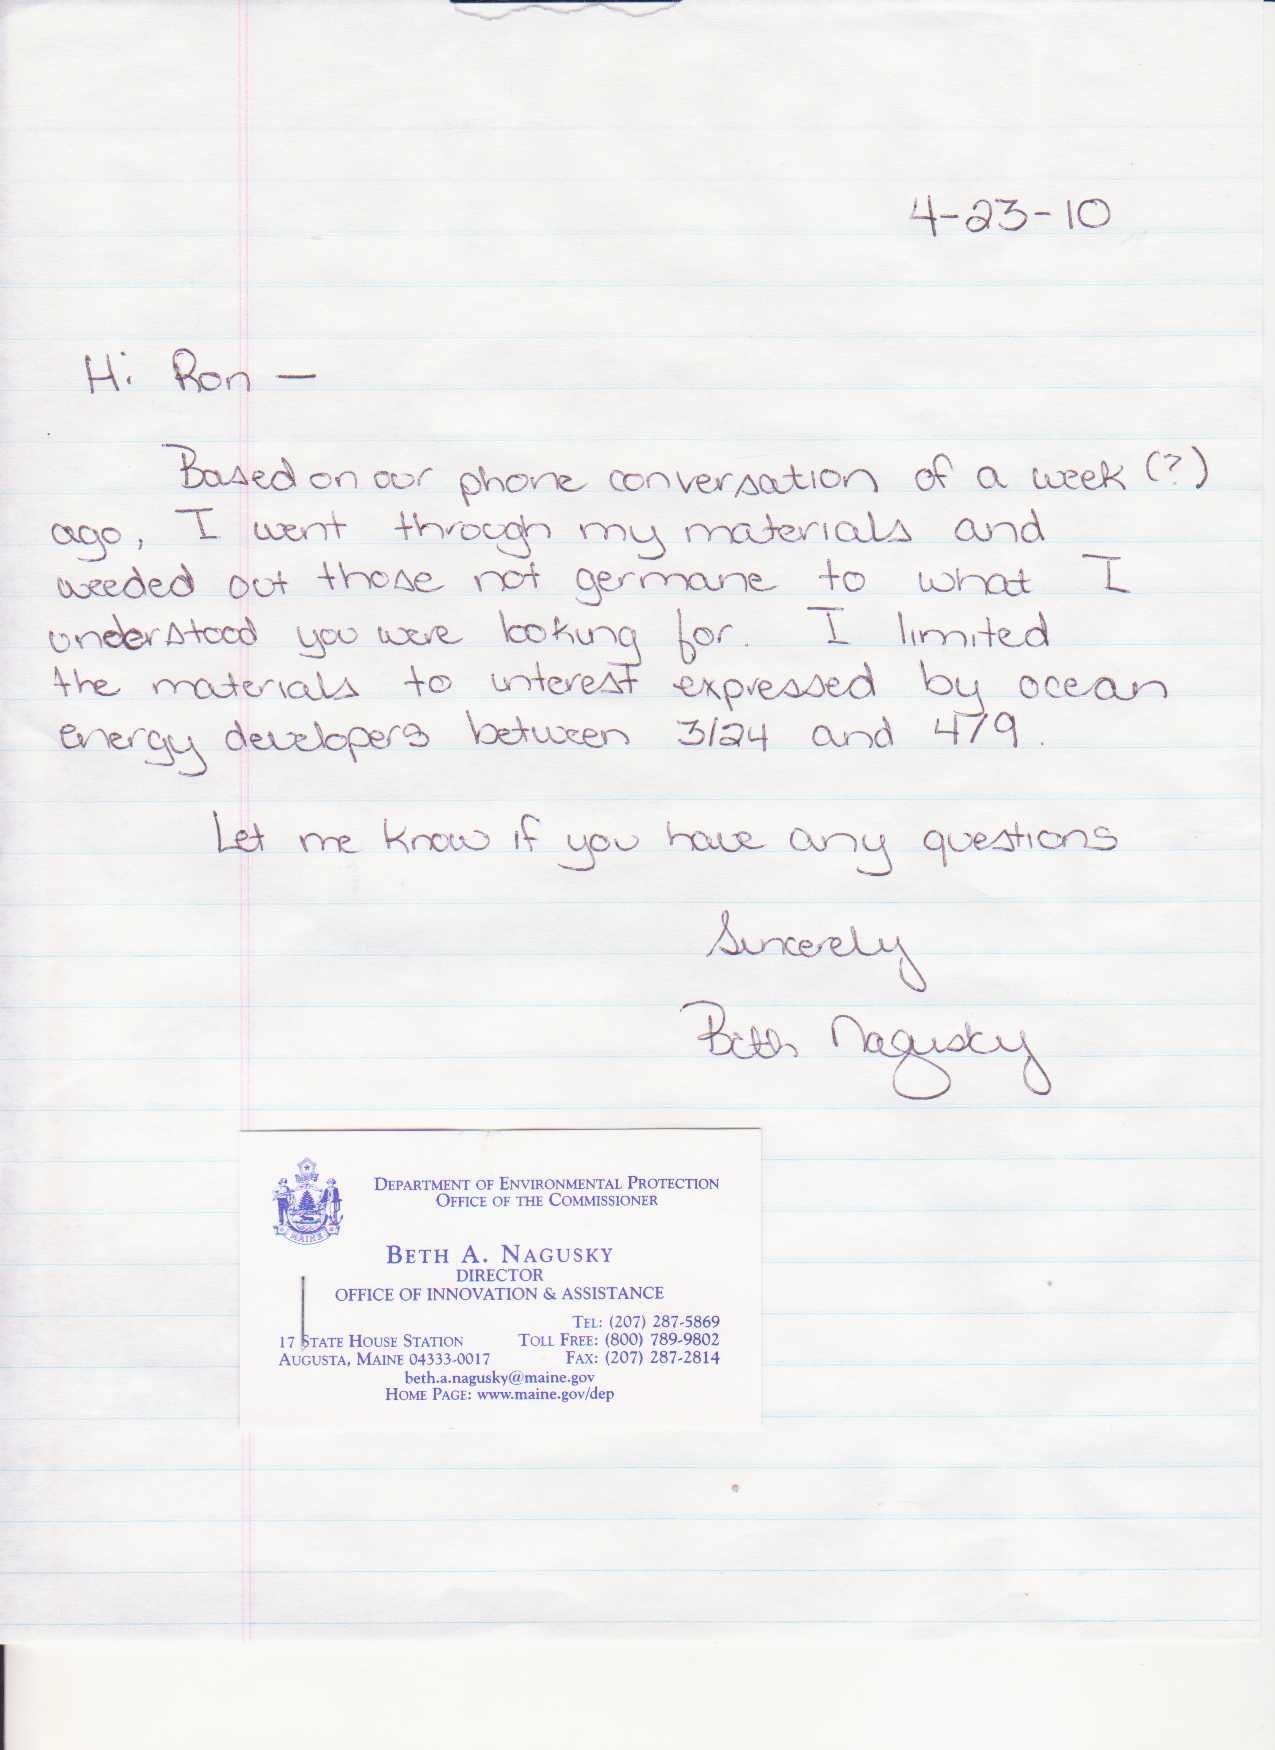 4-23-10
Hi Ron —
Based on our phone conversation of a week (?)
ago, I went through my materials and
weeded out those not germane to what I
understood you were looking for. I limited
the materials to interest expressed by ocean
energy developers between 3/24 and 4/9.
Let me know if you have any questions
Sincerely
Beth Nagusky
DEPARTMENT OF ENVIRONMENTAL PROTECTION
OFFICE OF THE COMMISSIONER
MAINE
BETH A. NAGUSKY
DIRECTOR
OFFICE OF INNOVATION & ASSISTANCE
TEL: (207) 287-5869
17 STATE HOUSE STATION TOLL FREE: (800) 789-9802
AUGUSTA, MAINE 04333-0017 FAX: (207) 287-2814
beth.a.nagusky@maine.gov
HOME PAGE: www.maine.gov/dep